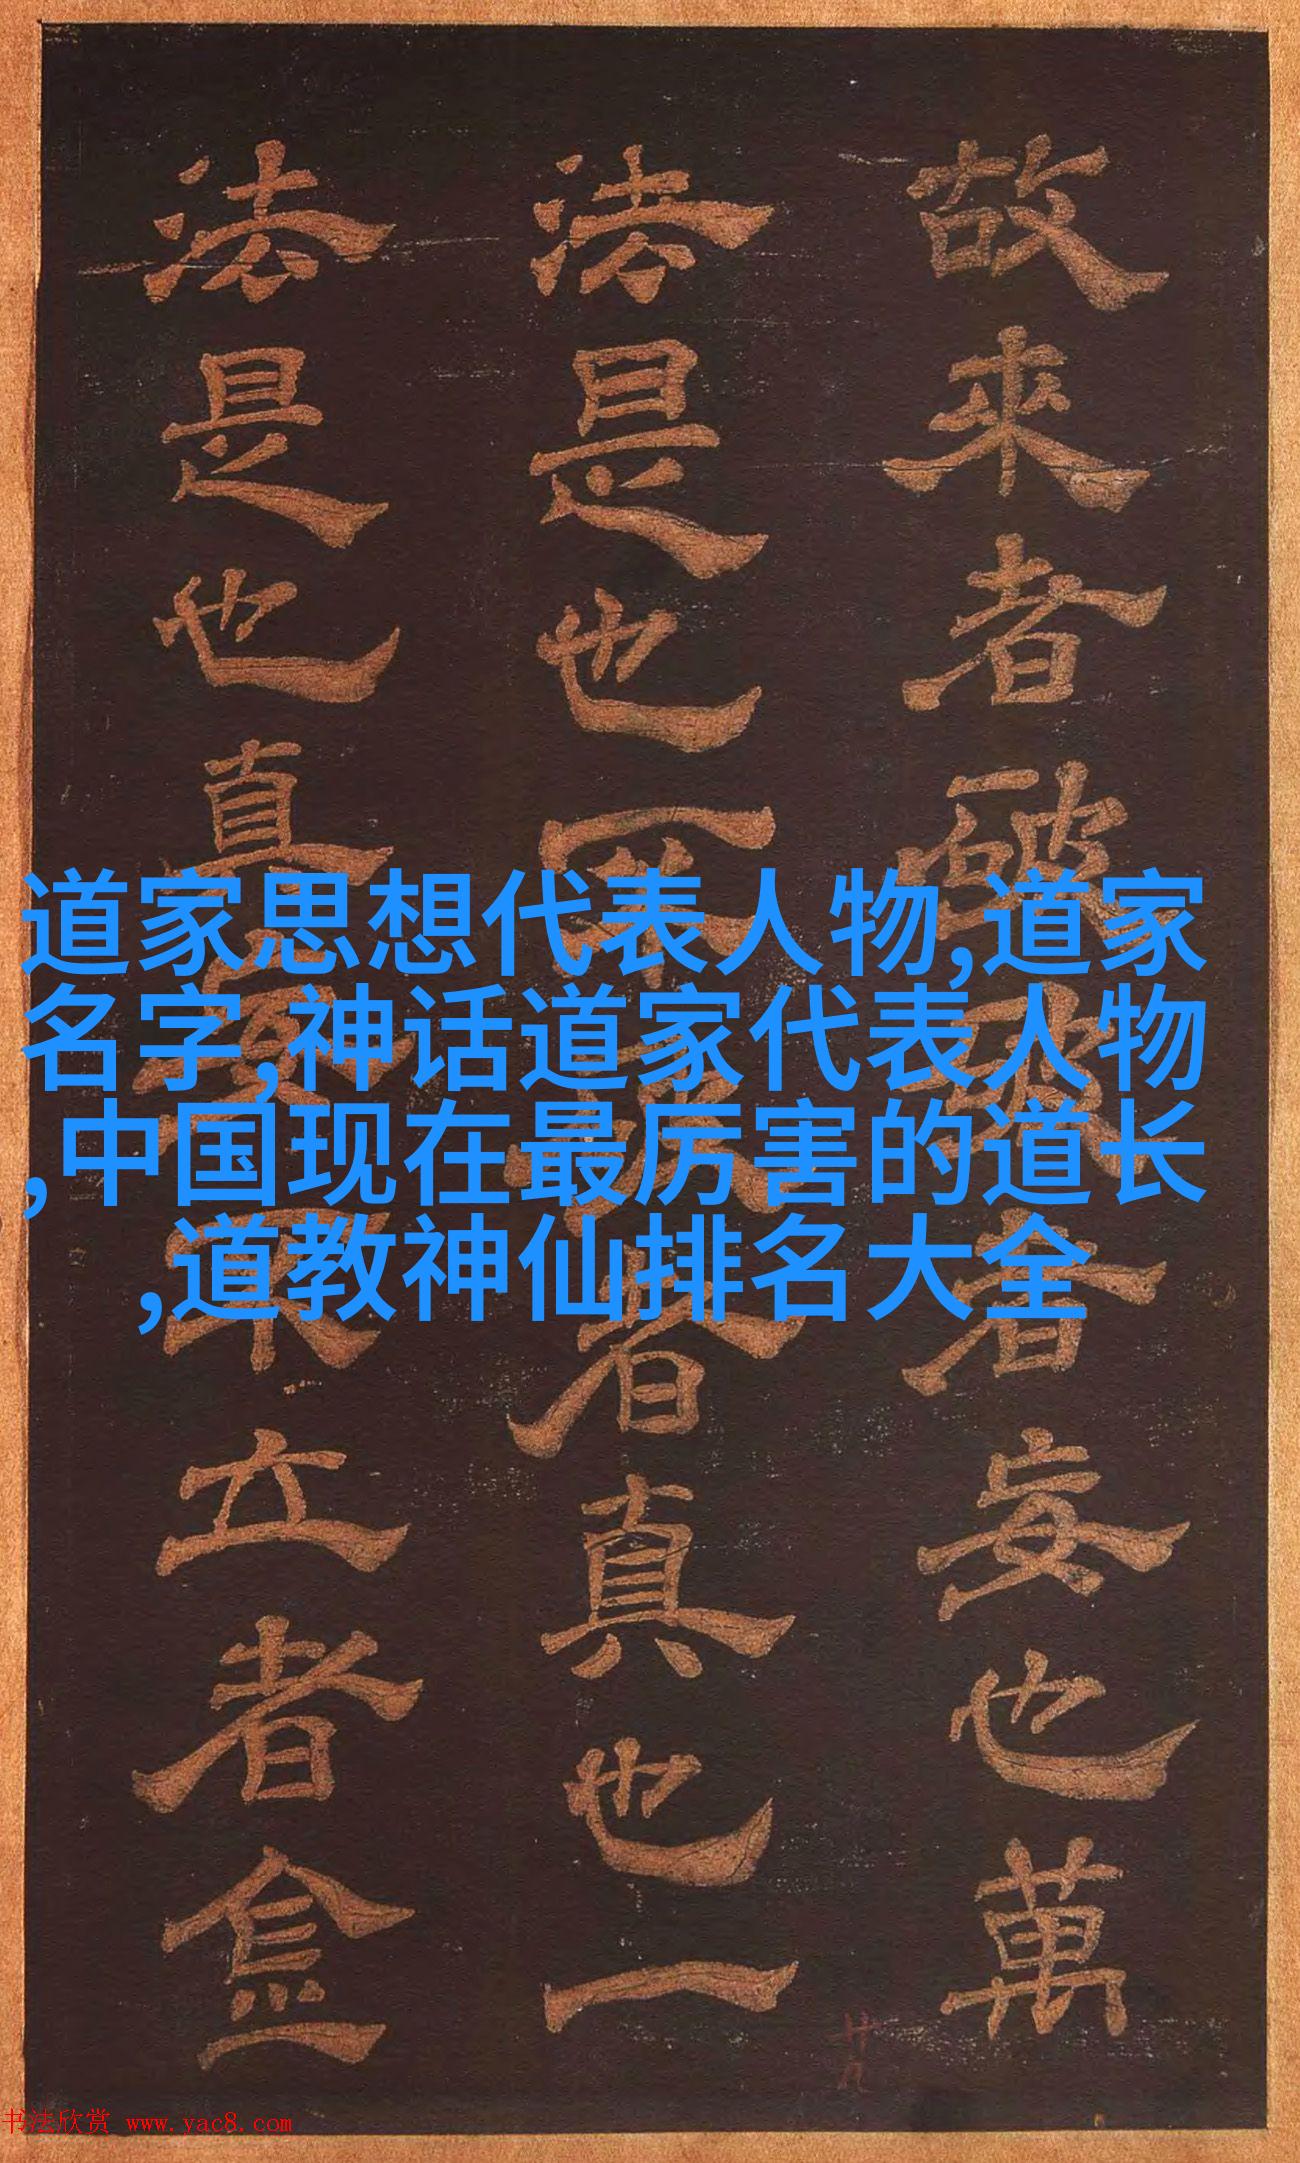 故來者者妄也萬
法是也者真也一
法是也真不立者
道家思想代表人物,道家
名字,神话道家代表人物
,中国现在最厉害的道长
,道教神仙排名大全
书法欣赏 www.yac8.com